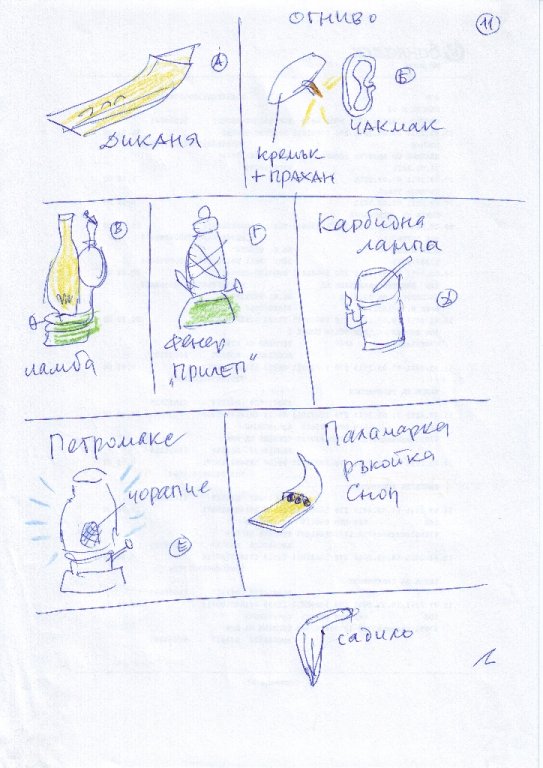 ОГНИВО
11
А
ДИКАНЯ
Б
ЧАКМАК
Кремък
+ ПРАХАН
В
ламба
Г
Фенер
„ПРИЛЕП“
Карбидна
лампа
Д
Петромакс
чорапче
Е
Паламарка
ръкойка
Сноп
садило